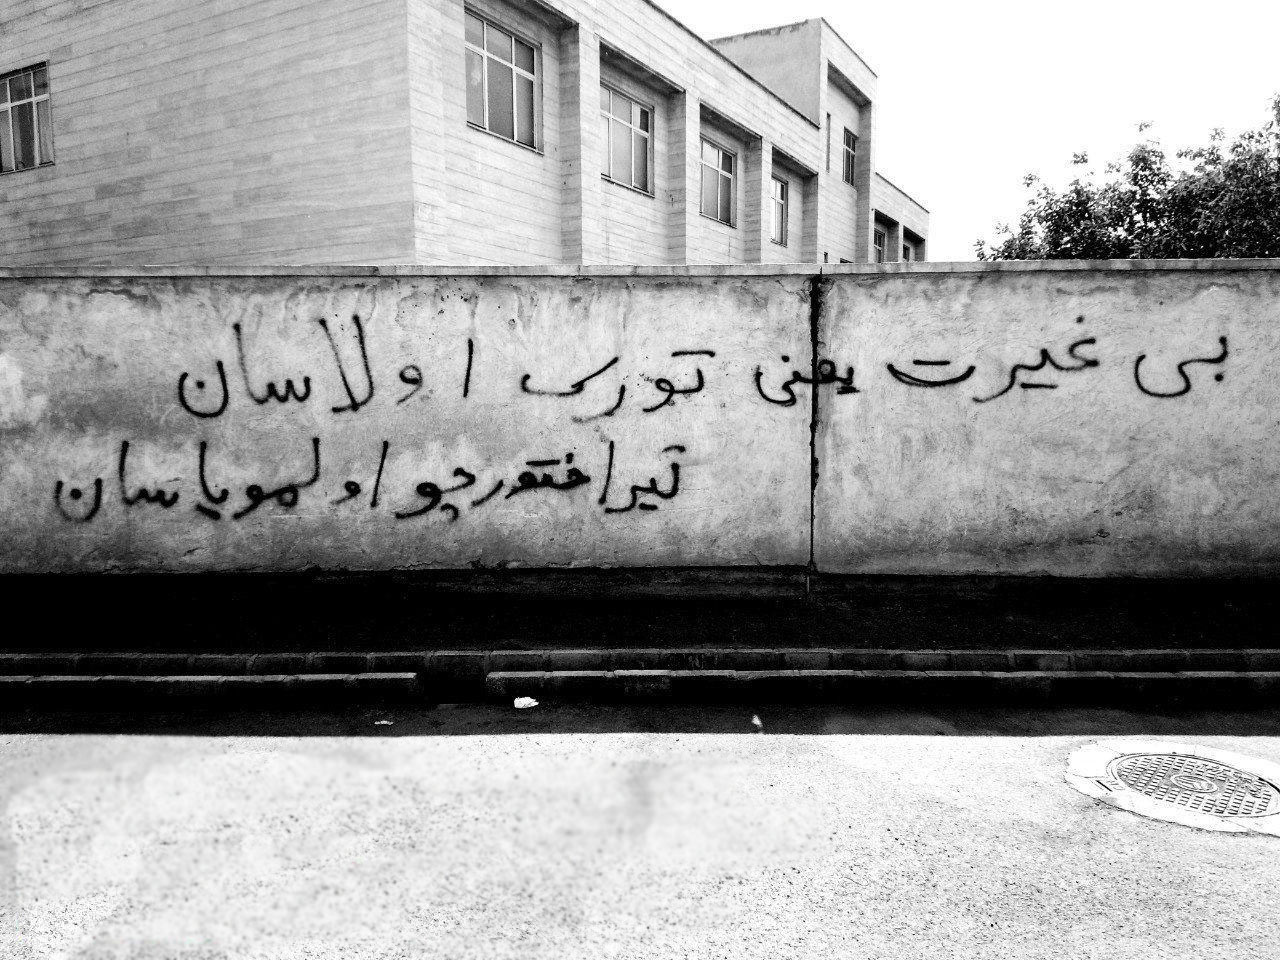 بی غیرت یعنی تورک اولاسان
تیراختورچو اولمویاسان